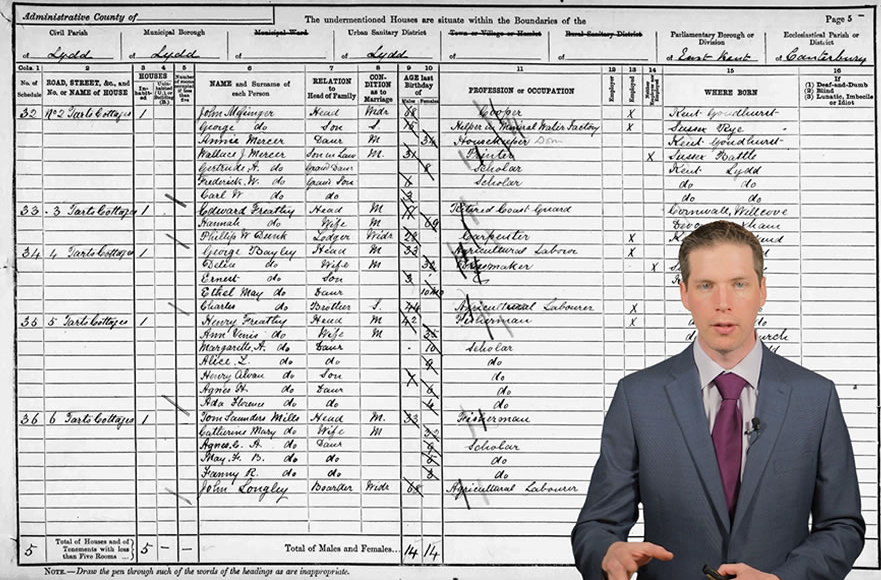 Administrative County of
The undermentioned Houses are situate within the Boundaries of the
Page 5
Civil Parish
Municipal Borough
Municipal Ward
Urban Sanitary District
Town or Village or Hamlet
Rural Sanitary District
Parliamentary Borough or Division
Ecclesiastical Parish or District
of Lydd
of Lydd
of
of Lydd
of
of
of East Kent
of Canterbury
Cols. 1 2 3 4 5 6 7 8 9 10 11 12 13 14 15 16
No. of Schedule
ROAD, STREET, &c., and No. or NAME of HOUSE
HOUSES
In-habit-ed
NAME and Surname of each Person
RELATION to Head of Family
CON-DITION as to Marriage
AGE last Birthday of
Males
Females
PROFESSION or OCCUPATION
Employer
Employed
WHERE BORN
If
(1) Deaf-and-Dumb
(2) Blind
(3) Lunatic, Imbecile or Idiot
32 No 2 Tarts Cottages 1 Head Widr Cooper X Kent Goudhurst
George do Son S. Helper in Mineral Water Factory X Sussex Rye
Annie Mercer Daur M 34 Housekeeper Dom Kent Goudhurst
Wallace J. Mercer Son in Law M. 31 Painter X Sussex Battle
Gertrude A. do Grand Daur 8 Scholar Kent Lydd
Frederick W. do Grand Son Scholar do do
Carl W do do do do
33 3 Tarts Cottages 1 Edward Freathy Head M Retired Coast Guard Cornwall
Hannah do Wife M 69
Phillip W Lodger Widr Carpenter X
34 4 Tarts Cottages 1 George Bayley Head M 33 Agricultural Labour X
Delia do Wife M X
Ernest do Son 3
Ethel May do Daur
Charles do Brother S. 44 Agricultural Labourer X
35 5 Tarts Cottages 1 Henry Freathy Head M 42 Fisherman X
Ann do Wife M 35
do Daur Scholar
Alice L. do do do
Henry do Son do
Agnes H. do Daur do
Ada Florence do do do
36 6 Tarts Cottages 1 Tom Saunders Mills Head M. 33 Fisherman
Catherine Mary do Wife M
Agnes E. A. do Daur Scholar
May F. B. do do do
Fanny R. do do do
John Longley Boarder Widr Agricultural Labourer
5 Total of Houses and of Tenements with less than Five Rooms 5 - - Total of Males and Females... 14 14
NOTE.—Draw the pen through such of the words of the headings as are inappropriate.